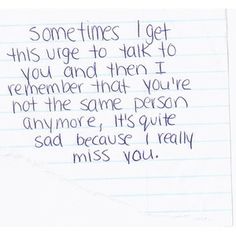 sometimes I get
this urge to talk to
you and then I
remember that you're
not the same person
anymore, it's quite
sad because i really
miss you.